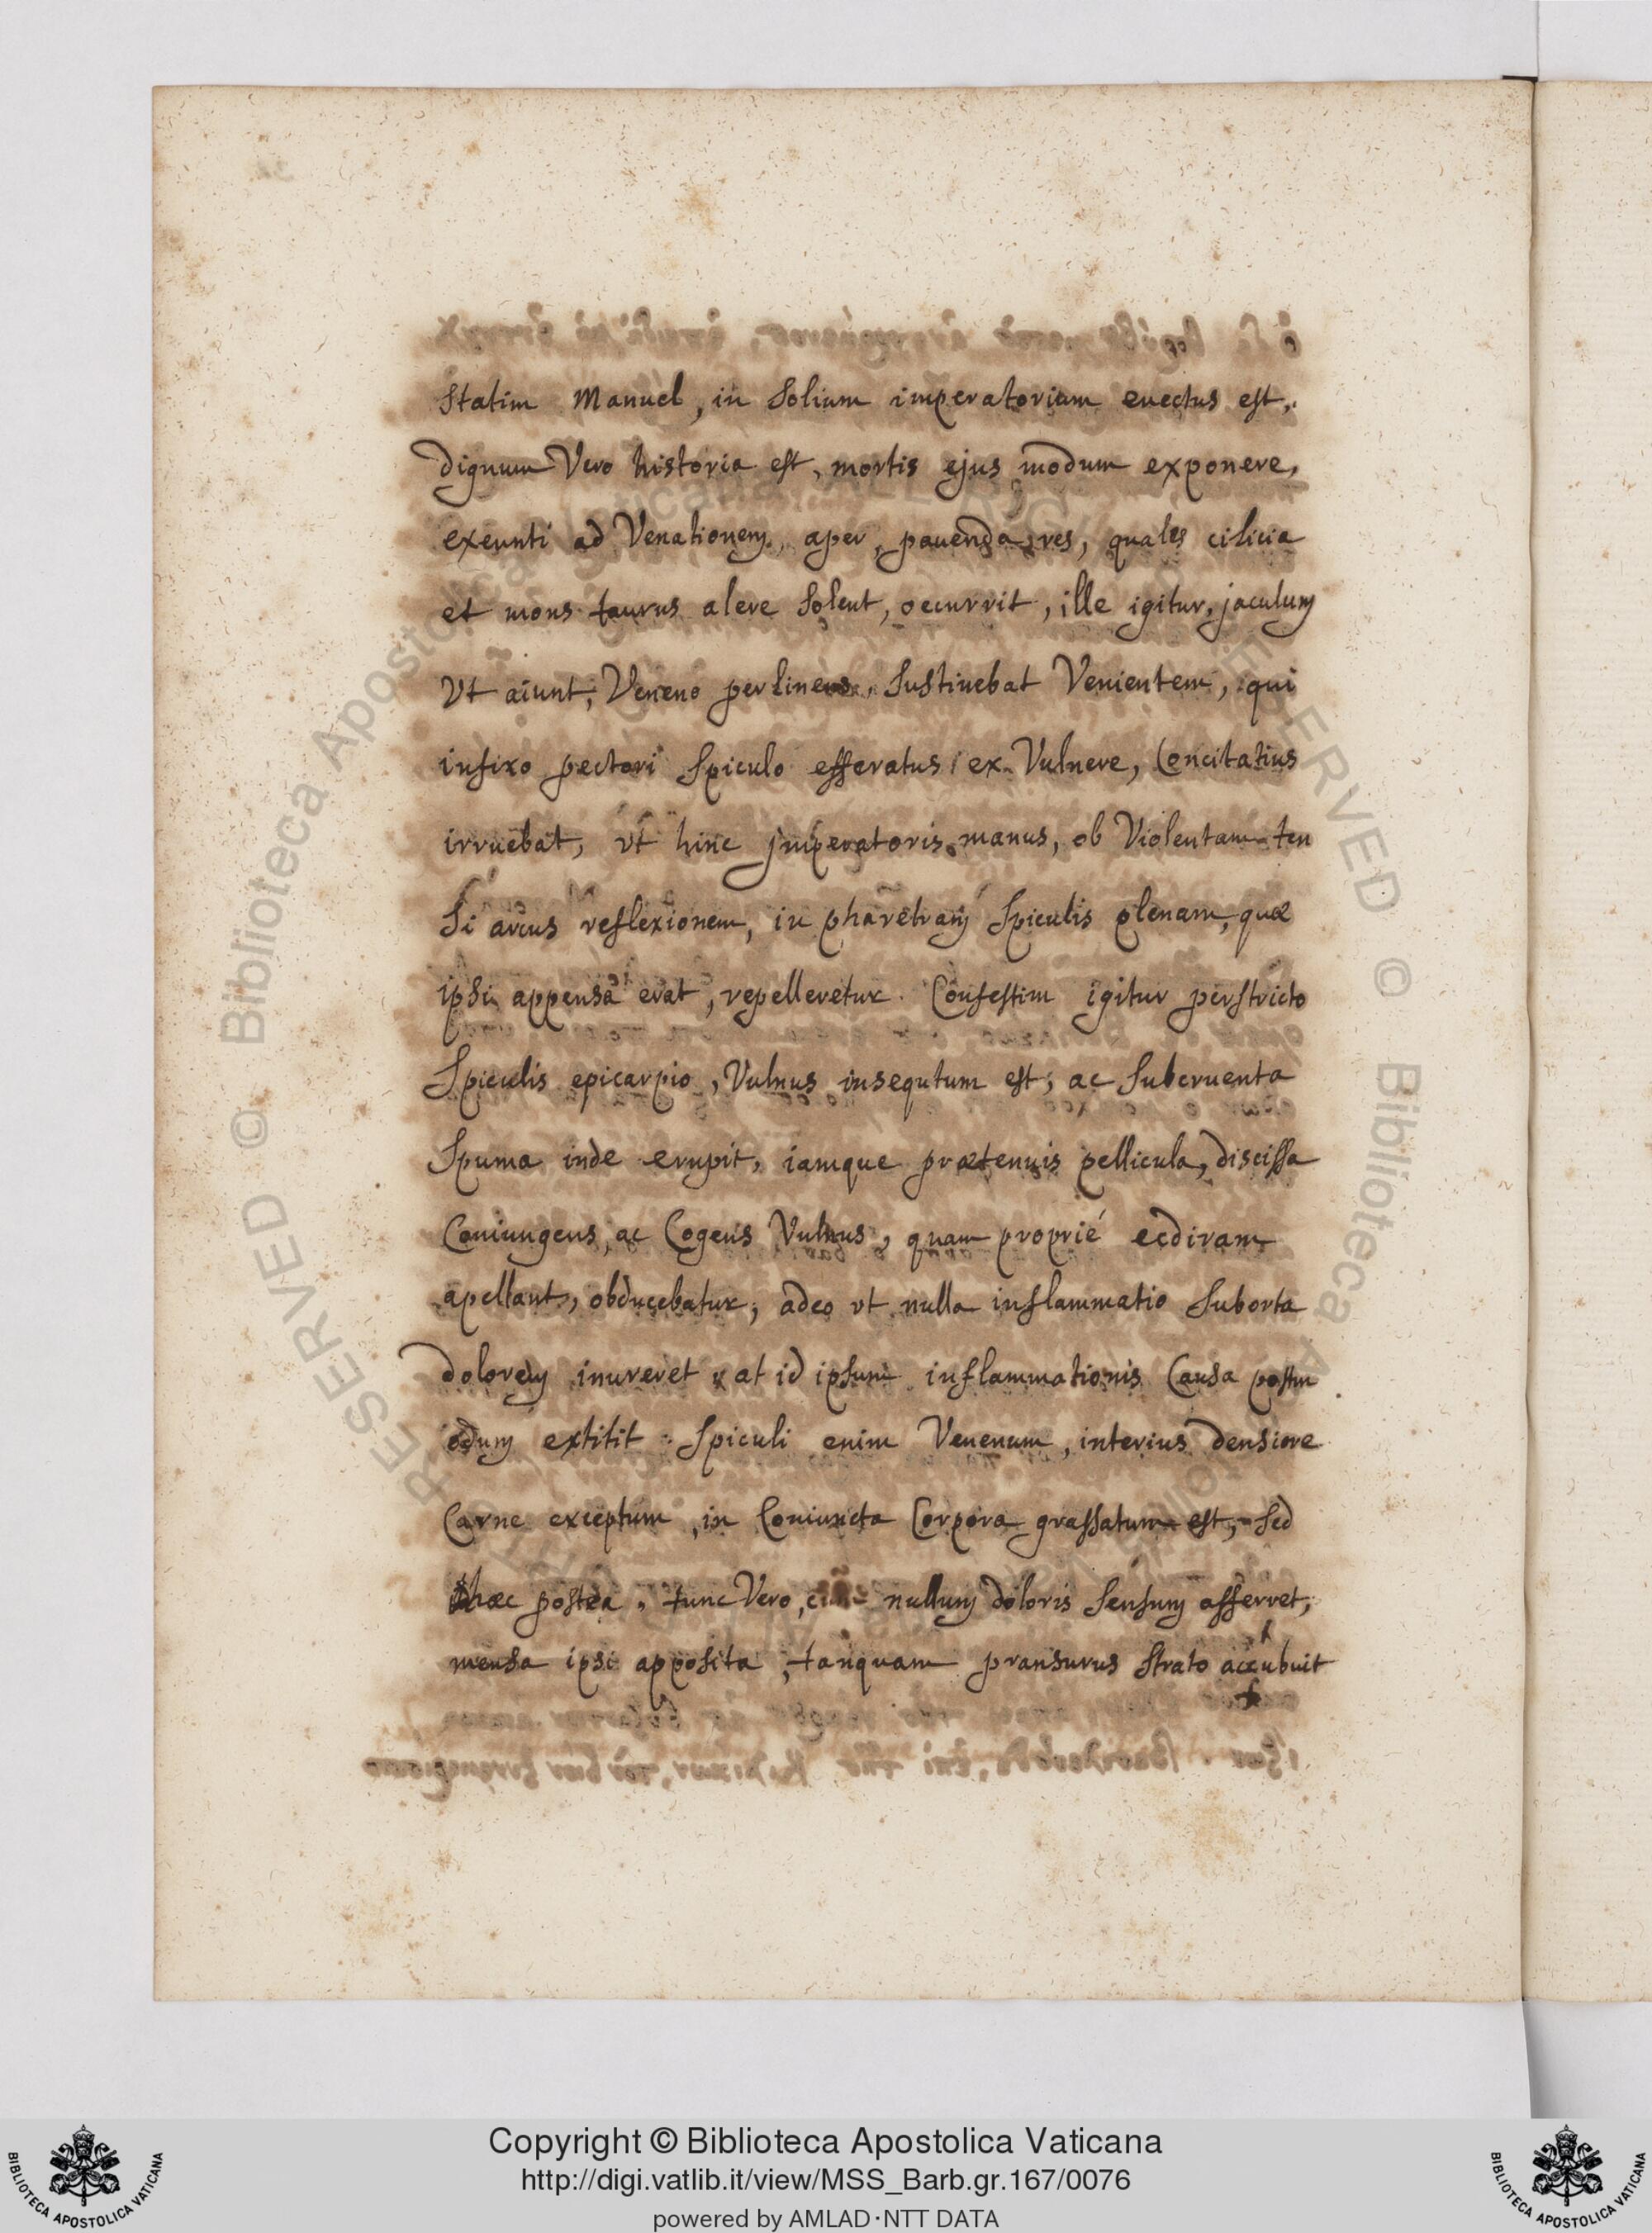 Statim Manuel, in Solium imperatorium euectus est,
dignum Vero historia est, mortis ejus modum exponere,
exeunti ad Venationem, aper, pauenda res, quales cilicia
et mons taurus alere Solent, occurrit, ille igitur, jaculum
Vt aiunt, Veneno perlinens, Sustinebat Venientem, qui
infixo pectori Spiculo efferatus ex Vulnere, Concitatius
irruebat, vt hinc jmperatoris manus, ob Violentam ten
Si arcus reflexionem, in pharetram Spiculis plenam, quæ
ipsi appensa erat, repelleretur. Confestim igitur perstricto
Spiculis epicarpio, Vulnus insequtum est, ac Subcruenta
Spuma inde erupit, iamque prætenuis pellicula, discissa
Coniungens, ac Cogens Vulnus, quam proprié ecdiram
apellant, obducebatur, adeo vt nulla inflammatio Suborta
dolorem inureret, at id ipsum inflammationis Causa postm
odum extitit. Spiculi enim Venenum, interius densiore
Carne exceptum, in Coniuncta Corpora grassatum est, Sed
hæc postea, tunc Vero, nullum doloris Sensum afferret,
mensa ipsi apposita, tanquam pransurus Strato accubuit
Biblioteca Apostolica Vaticana
RESERVED © Biblioteca Apostolica Vaticana
RESERVED © Biblioteca
Copyright © Biblioteca Apostolica Vaticana
http://digi.vatlib.it/view/MSS_Barb.gr.167/0076
powered by AMLAD·NTT DATA
BIBLIOTECA APOSTOLICA VATICANA
BIBLIOTECA APOSTOLICA VATICANA